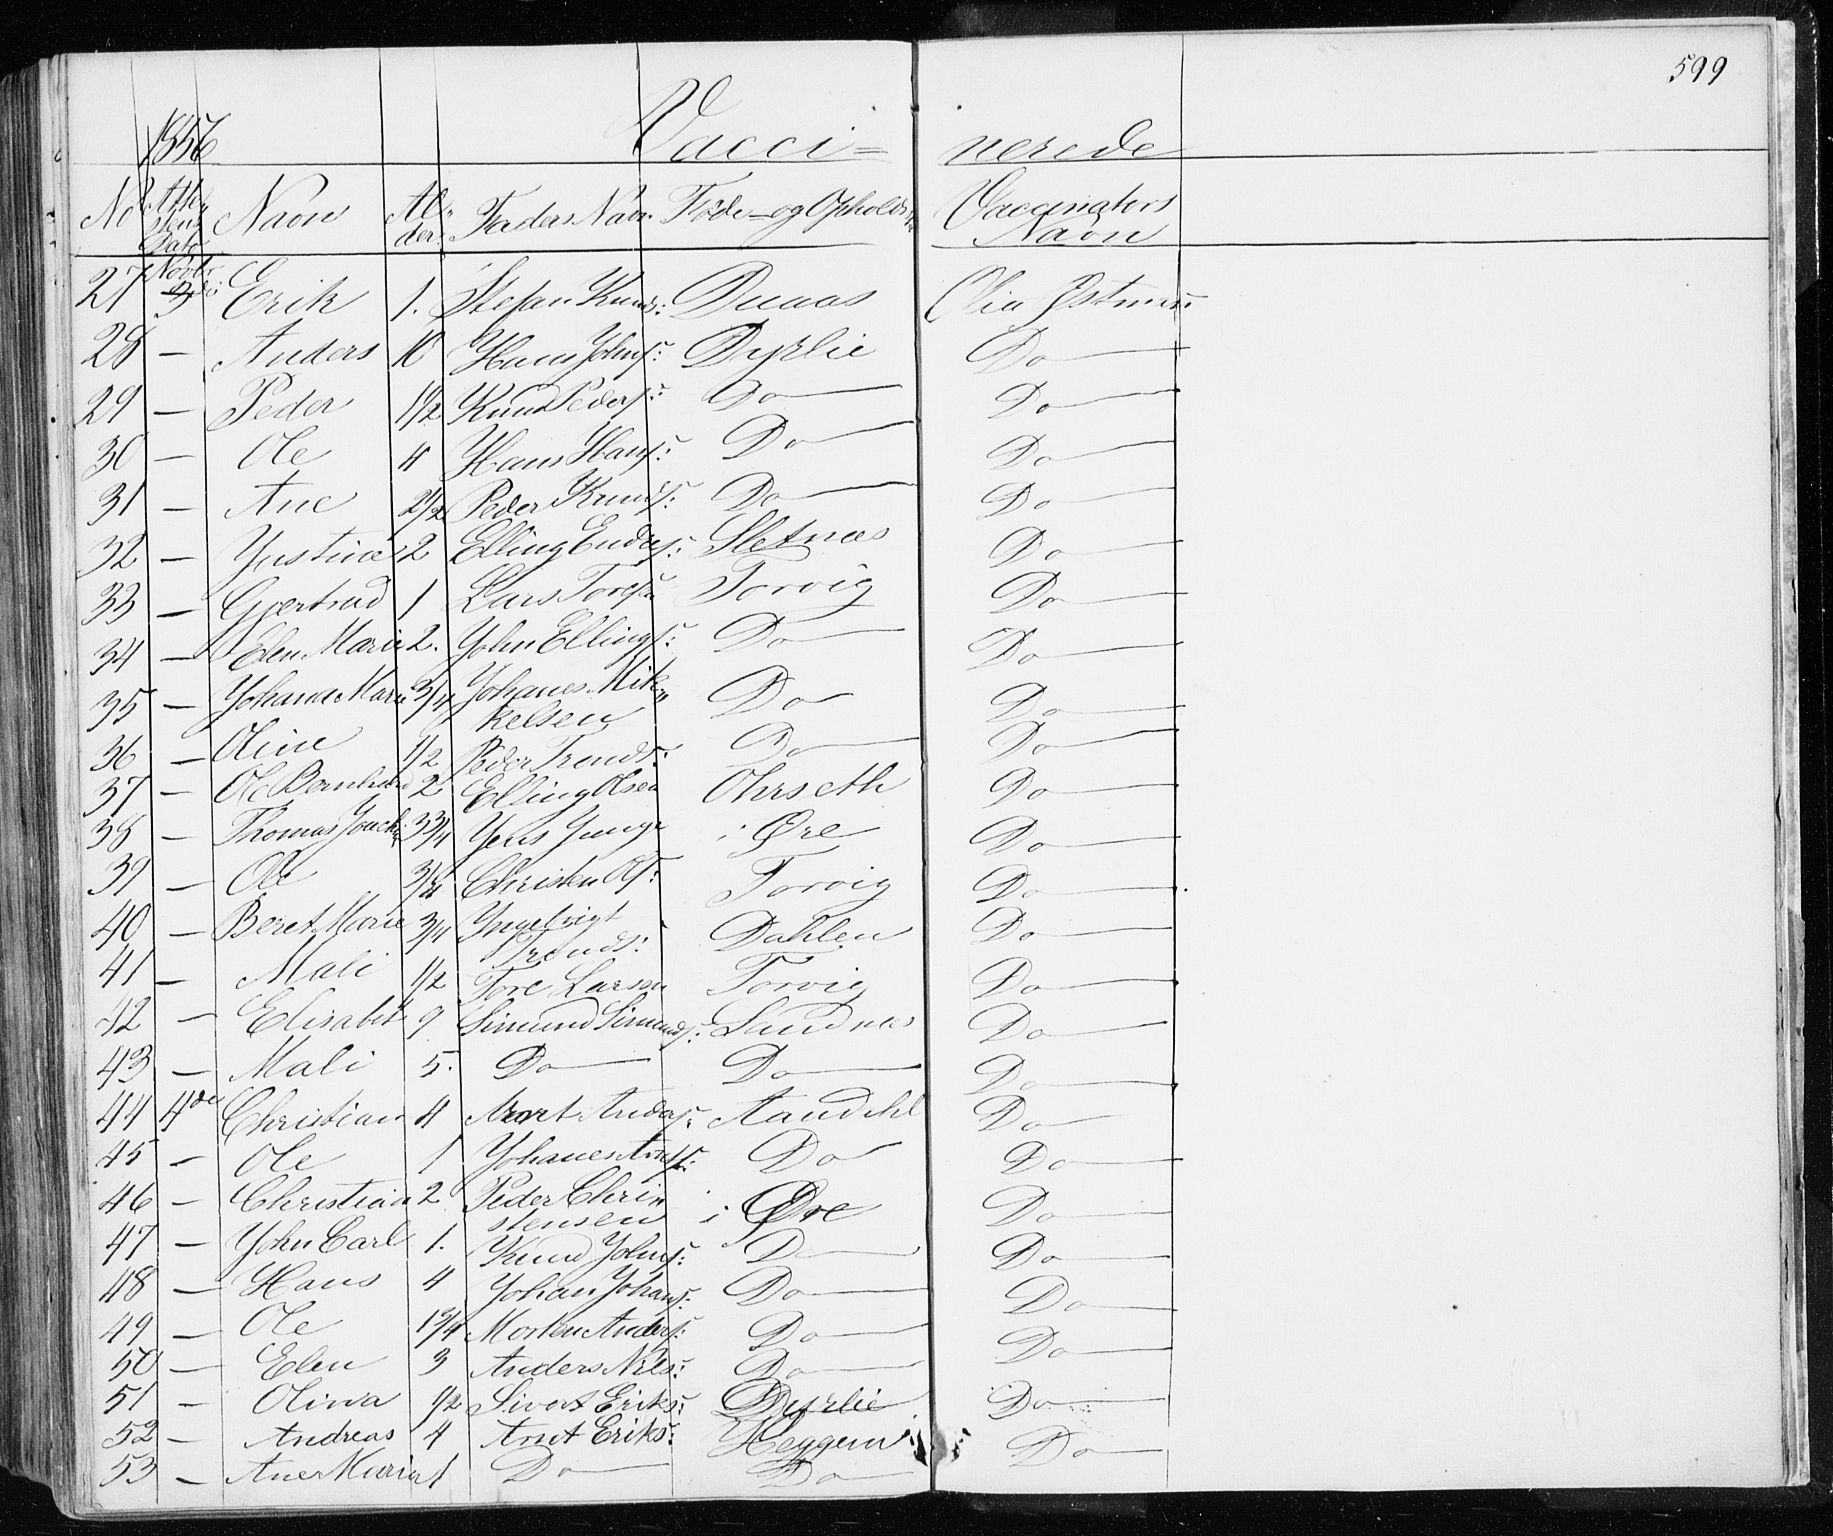 599
1856 Vacci= nerede
No Attestens Dato Navn Alder Faders Navn Føde- og Opholds Vaccinators Navn
27 Novbr 3die Erik 1. Stefan Knuds: Duaas Olia Østmun
28 — Anders 10 Hans Johns: Dyrlie Do
29 — Peder 1 1/2 Knud Peders: Do Do
30 — Ole 4 Hans Hans: Do Do
31 — Ane 2 1/2 Peder Knuds: Do Do
32 — Justina 2 Elling Enders: Sletnæs Do
33 — Gjertrud 1 Lars Tores: Torvig Do
34 — Elen Marie 2. John Ellings: Do Do
35 — Johana Marie 3/4 Johanes Mik-
kelsen Do Do
36 — Oline 1/2 Peder Tronds: Do Do
37 — Ole Bernhard 2 Elling Olsen Ohrseth Do
38 — Thomas 3 3/4 Jens Junge i Øre Do
39 — Ole 3/4 Christen Ols: Torvig Do
40 — Beret Marie 3/4 Ingebrigt
Tronds: Dahlen Do
41 — Mali 1/2 Tore Larsen Torvig Do
42 — Elisabet 9 Simund Simunds: Sandnæs Do
43 — Mali 5. Do Do Do
44 4de Christian 4 Arnt Anders: Aandahl Do
45 — Ole 1 Johanes Arnts: Do Do
46 — Christian 2 Peder Chri
stensen i Øre Do
47 — John Carl 1. Knud Johns: Do Do
48 — Hans 4 Johan Johans: Do Do
49 — Ole Morten Anders: Do Do
50 — Elen 3 Anders Nils: Do Do
51 — Oliva 1/2 Sivert Eriks: Dyrlie Do
52 — Andreas 4 Arnt Eriks: Heggem Do
53 — Ane Maria 1 Do Do